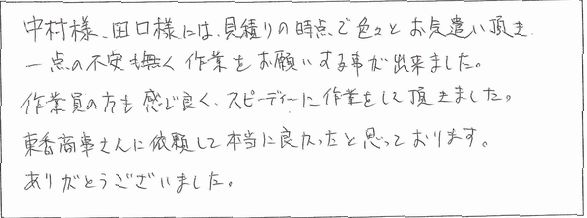 中村様、田口様には、見積りの時点で色々とお気遣い頂き
一点の不安も無く作業をお願いする事が出来ました。
作業員の方も感じ良く、スピーディーに作業をして頂きました。
東香商事さんに依頼して本当に良かったと思っております。
ありがとうございました。